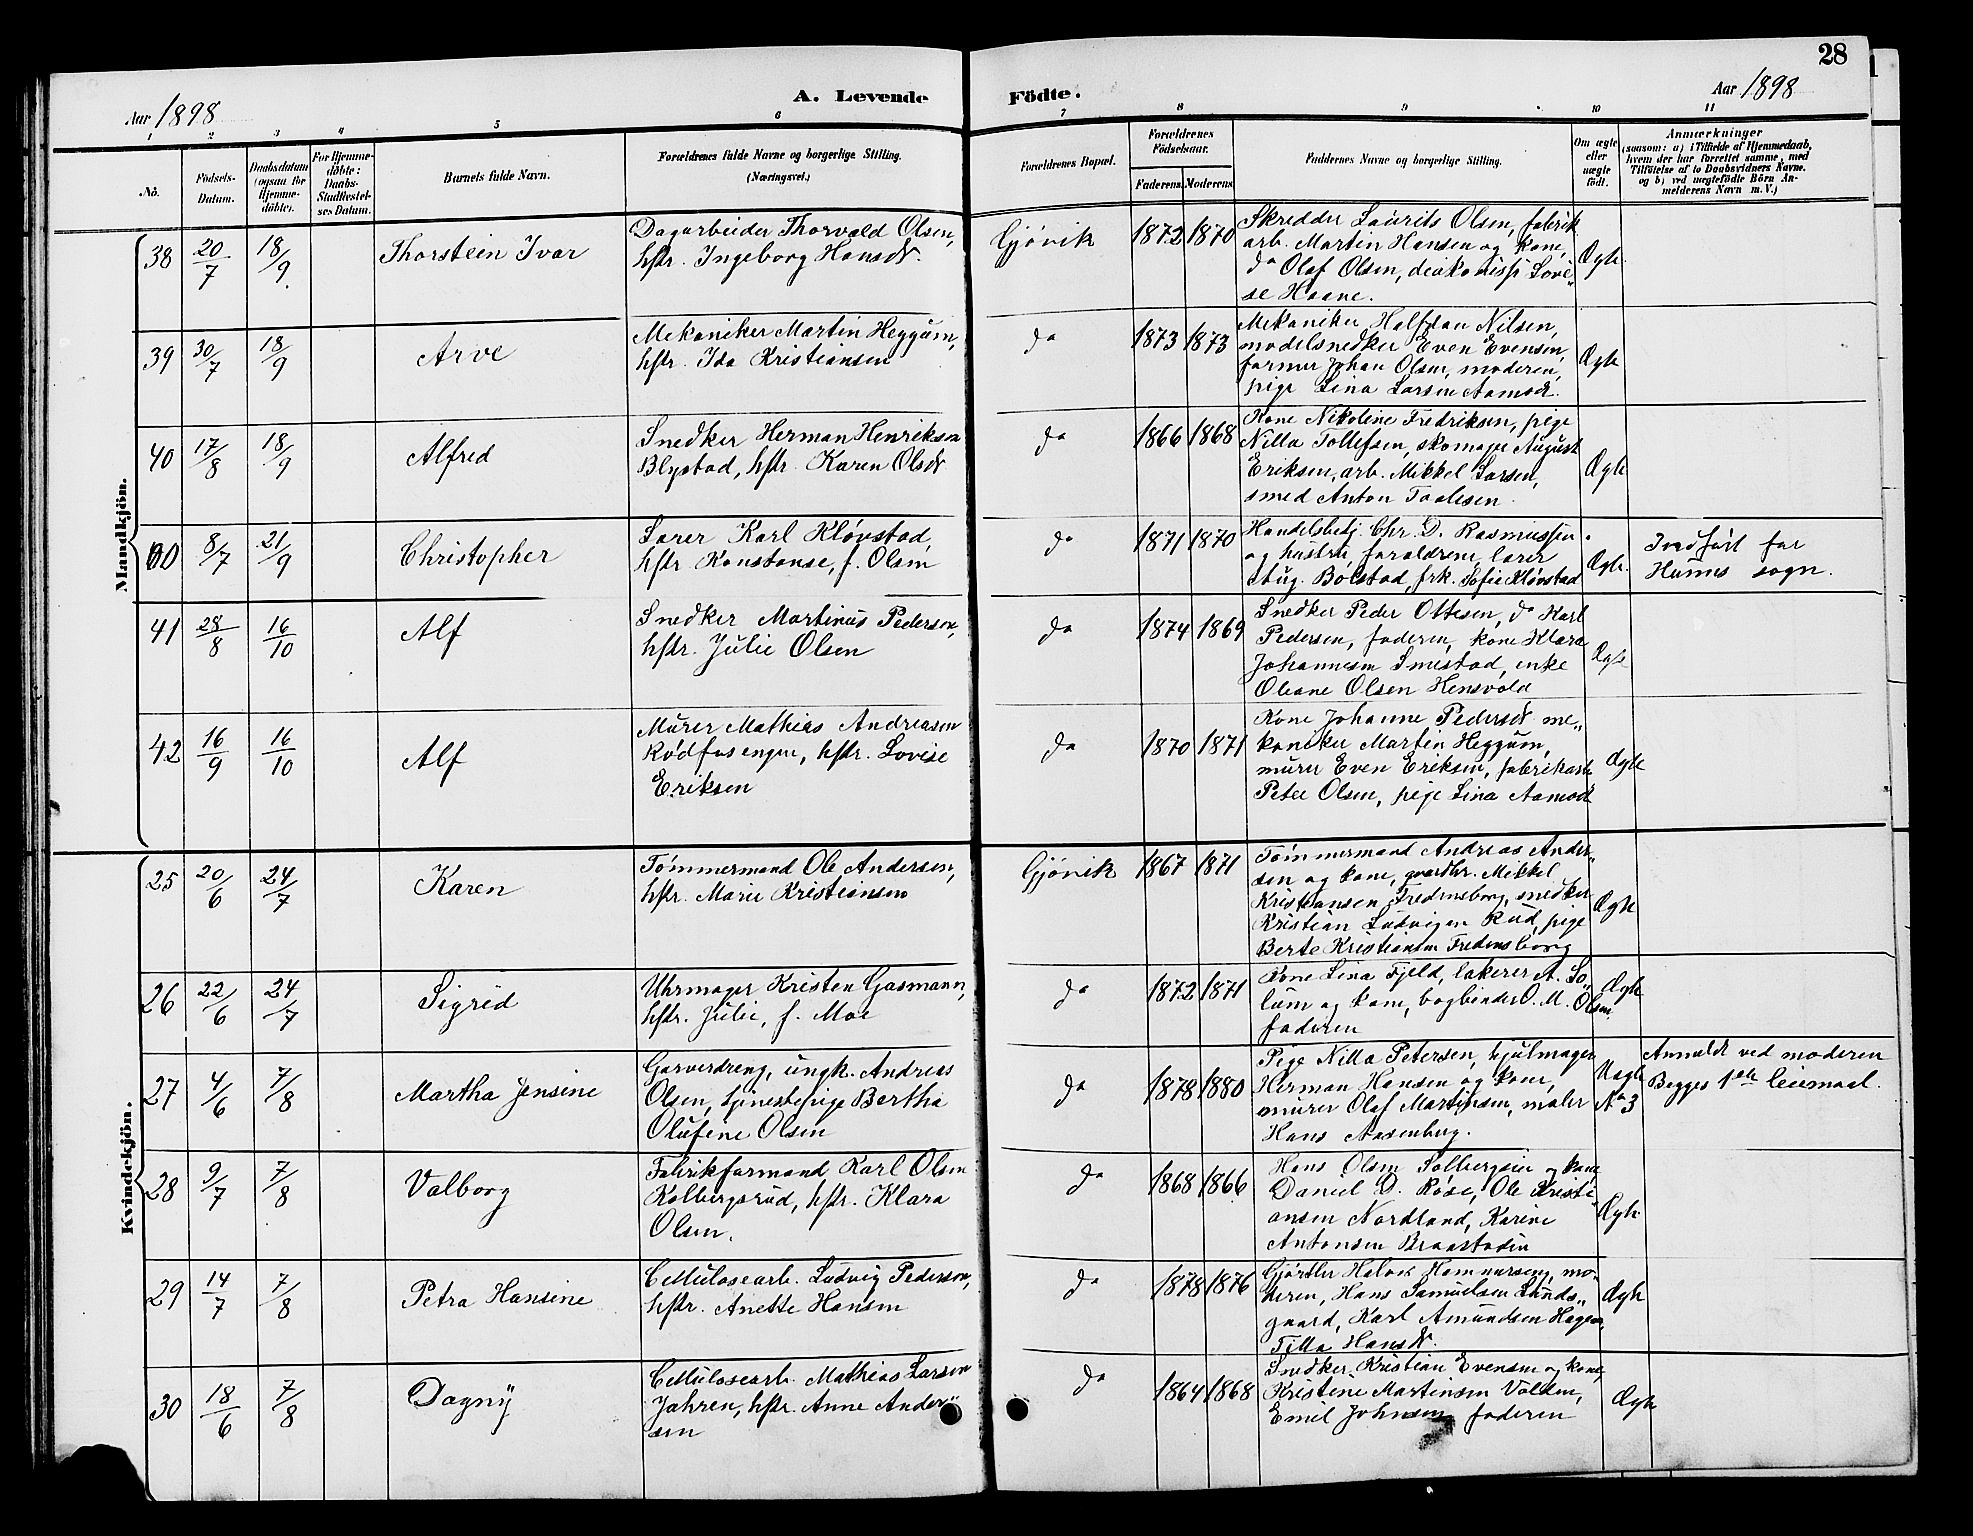 28
Aar 1898
A. Levende Födte.
Aar 1898
1 2 3 4 5 6 7 8 9 10 11
No.
Födsels-
Datum.
Daabsdatum
(ogsaa for
Hjemme-
döbte).
For Hjemme-
döbte:
Daabs-
Stadfæstel-
ses Datum.
Barnets fulde Navn.
Forældrenes fulde Navne og borgerlige Stilling.
(Næringsvei.)
Forældrenes Bopæl.
Forældrenes
Födselsaar.
Faderens. Moderens.
Faddernes Navne og borgerlige Stilling.
Om ægte
eller
uægte
födt.
Anmærkninger
(saasom: a) i Tilfælde af Hjemmedaab,
hvem der har forrettet samme, med
Tilföielse af to Daabsvidners Navne.
og b) ved uægtefödte Börn An-
melderens Navn m. V.)
Mandkjön.
38 20/7 18/9 Thorstein Ivar
Dagarbeider Thorvald Olsen,
hstr. Ingeborg Hansdr.
Gjövik 1872 1870
Skredder Laurits Olsen, fabrik
arb. Martin Hansen og kone,
do Olaf Olsen, diakonisse Lovi-
se Haane.
Ægte.
39 30/7 18/9 Arve
Mekaniker Martin Heggum,
hstr. Ida Kristiansen
do 1873 1873
Mekaniker Halfdan Nilsen,
modelsnedker Even Evensen,
former Johan Olsen, moderen,
pige Lina Larsen Aamodt.
Ægte
40 17/8 18/9 Alfred
Snedker Herman Henriksen
Blystad, hstr. Karen Olsdr
do 1866 1868
Kone Nikoline Fredriksen, pige
Nilla Tollefsen, skomager August
Eriksen, arb. Mikkel Larsen,
smed Anton Paulsen.
Ægte
00 8/7 21/9 Christopher
Lærer Karl Kløvstad,
hstr Konstanse, f. Olsen
do 1871 1870
Handelsbetj. Chr. D. Rasmussen
og hustru, forældrene, lærer
Aug. Bölstad, frk. Sofie Kløvstad
Ægte.
Indført for
Hunns sogn.
41 28/8 16/10 Alf
Snedker Martinus Pedersen,
hstr. Julie Olsen
do 1874 1869
Snedker Peder Ottesen, do Karl
Pedersen, faderen, kone Klara
Johannesen Smestad, enke
Oleane Olsen Hensvold
Ægte
42 16/9 16/10 Alf
Murer Mathias Andreasen
Rödfosengen, hstr. Lovise
Eriksen
do 1870 1871
Kone Johanne Pedersdr me-
kaniker Martin Heggum,
murer Even Eriksen, fabrikarb
Peter Olsen, pige Lina Aamodt
Ægte
Kvindekjön.
25 20/6 24/7 Karen
Tömmermand Ole Andersen,
hstr. Marie Kristiansen
Gjövik 1867 1871
Tömmermand Andreas Ander-
sen og kone, Mikkel
Kristiansen Fredensborg, snedker
Kristian Ludvigsen Rud, pige
Berte Kristiansen Fredensborg
Ægte
26 22/6 24/7 Sigrid
Uhrmager Kristen Gasmann,
hstr. Julie, f. Moe
do 1872 1871
Kone Lina Fjeld, lakerer A. So-
lum og kone, bogbinder O. M. Olsen.
faderen
Ægte
27 4/6 7/8 Martha Jensine
Garverdreng, ungk. Andreas
Olsen, tjenestepige Bertha
Olufine Olsen
do 1878 1880
Pige Nilla Petersen, hjulmager
Herman Hansen og kone,
murer Olaf Martinsen, maler
Hans Aasenberg.
Uægte
No 3
Anmeldt ved moderen
Begges 1ste leiemaal.
28 9/7 7/8 Valborg
Fabrikformand Karl Olsen
Kolbergsrud, hstr. Klara
Olsen.
do 1868 1866
Hans Olsen Solbergseie og kone,
Daniel D. Röise, Ole Kristi-
ansen Nordland, Karine
Antonsen Braastadeie
Ægte
29 14/7 7/8 Petra Hansine
Cellulosearb. Ludvig Pedersen,
hstr. Anette Hansen
do 1878 1876
Gjörtler Halvor Hammerseng, mo-
deren, Hans Samuelsen Lunds-
gaard, Karl Amundsen Hagen,
Tilla Hansdr.
Ægte
30 18/6 7/8 Dagny
Cellulosearb. Mathias Larsen
Jahren, hstr. Anne Ander-
sen
do 1864 1868
Snedker Kristian Evensen og kone,
Kristine Martinsen Valden,
Emil Johnsen, faderen
Ægte